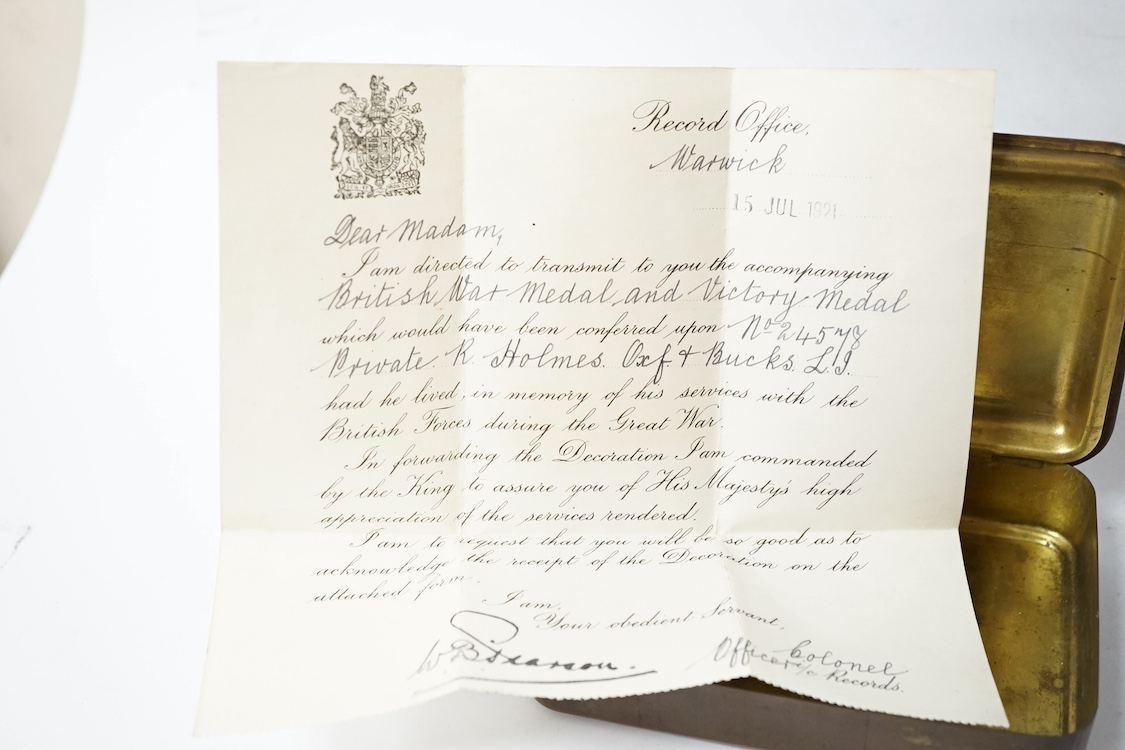 Record Office,
Warwick
15 JUL 1921
Dear Madam,
I am directed to transmit to you the accompanying
British War Medal and Victory Medal
which would have been conferred upon No 24578
Private R. Holmes. Oxf. & Bucks. L.I.
had he lived, in memory of his services with the
British Forces during the Great War.
In forwarding the Decoration I am commanded
by the King to assure you of His Majesty's high
appreciation of the services rendered.
I am to request that you will be so good as to
acknowledge the receipt of the Decoration on the
attached form.
I am,
Your obedient Servant,
Colonel
Officer i/c Records.